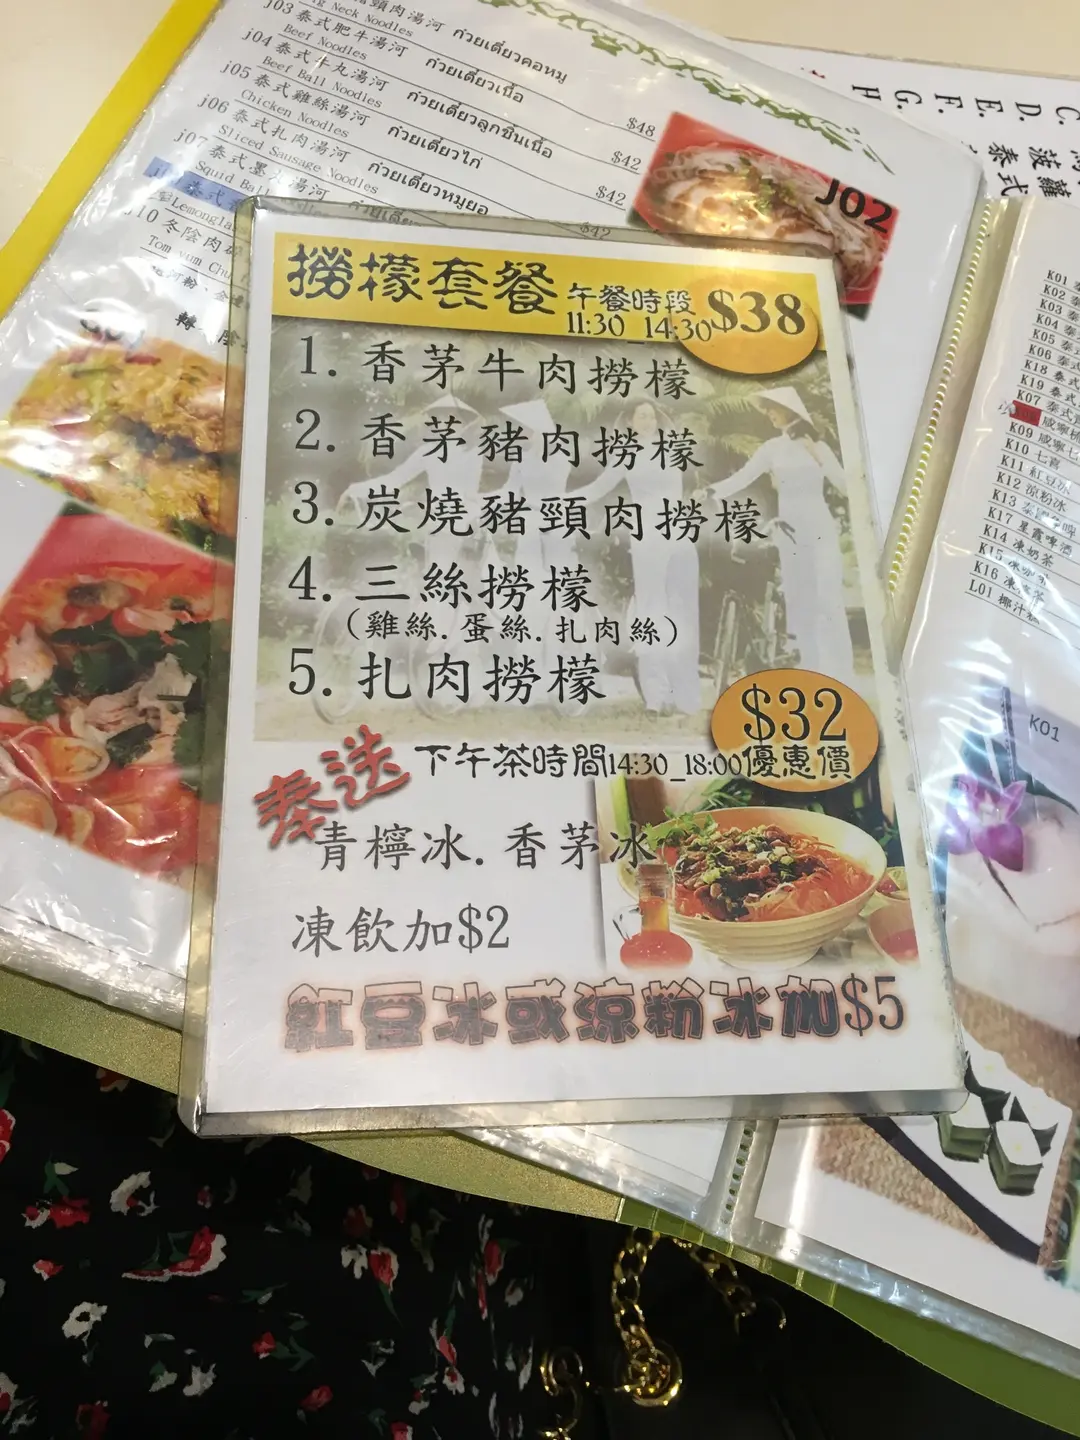 撈檬套餐 午餐時段 $38
11:30_14:30
1. 香茅牛肉撈檬
2. 香茅豬肉撈檬
3. 炭燒豬頸肉撈檬
4. 三絲撈檬
(雞絲.蛋絲.扎肉絲)
5. 扎肉撈檬
$32
下午茶時間14:30_18:00優惠價
奉送
青檸冰.香茅冰
凍飲加$2
紅豆冰或涼粉冰加$5
頸肉湯河 ก๋วยเตี๋ยวคอหมู
Neck Noodles
j03 泰式肥牛湯河 ก๋วยเตี๋ยวเนื้อ $48
Beef Noodles
j04 泰式牛丸湯河 ก๋วยเตี๋ยวลูกชิ้นเนื้อ $42
Beef Ball Noodles
j05 泰式雞絲湯河 ก๋วยเตี๋ยวไก่ $42
Chicken Noodles
j06 泰式扎肉湯河 ก๋วยเตี๋ยวหมูยอ $42
Sliced Sausage Noodles
j07 泰式墨丸湯河
Squid Ball
泰式
j10 冬陰肉
Tom yum
J02
C.
D.
E.
F.
G.
菠蘿
泰式
K01
K02
K03
K04
K05
K06 泰式
K18 泰式
K19 泰式
K07 泰式
咸檸
K09 咸檸七
K10 七喜
K11 紅豆冰
K12 涼粉冰
K13
K17 星霞啤酒
K14 凍奶茶
K15 凍咖啡
K16 凍
L01 椰汁糕
K01